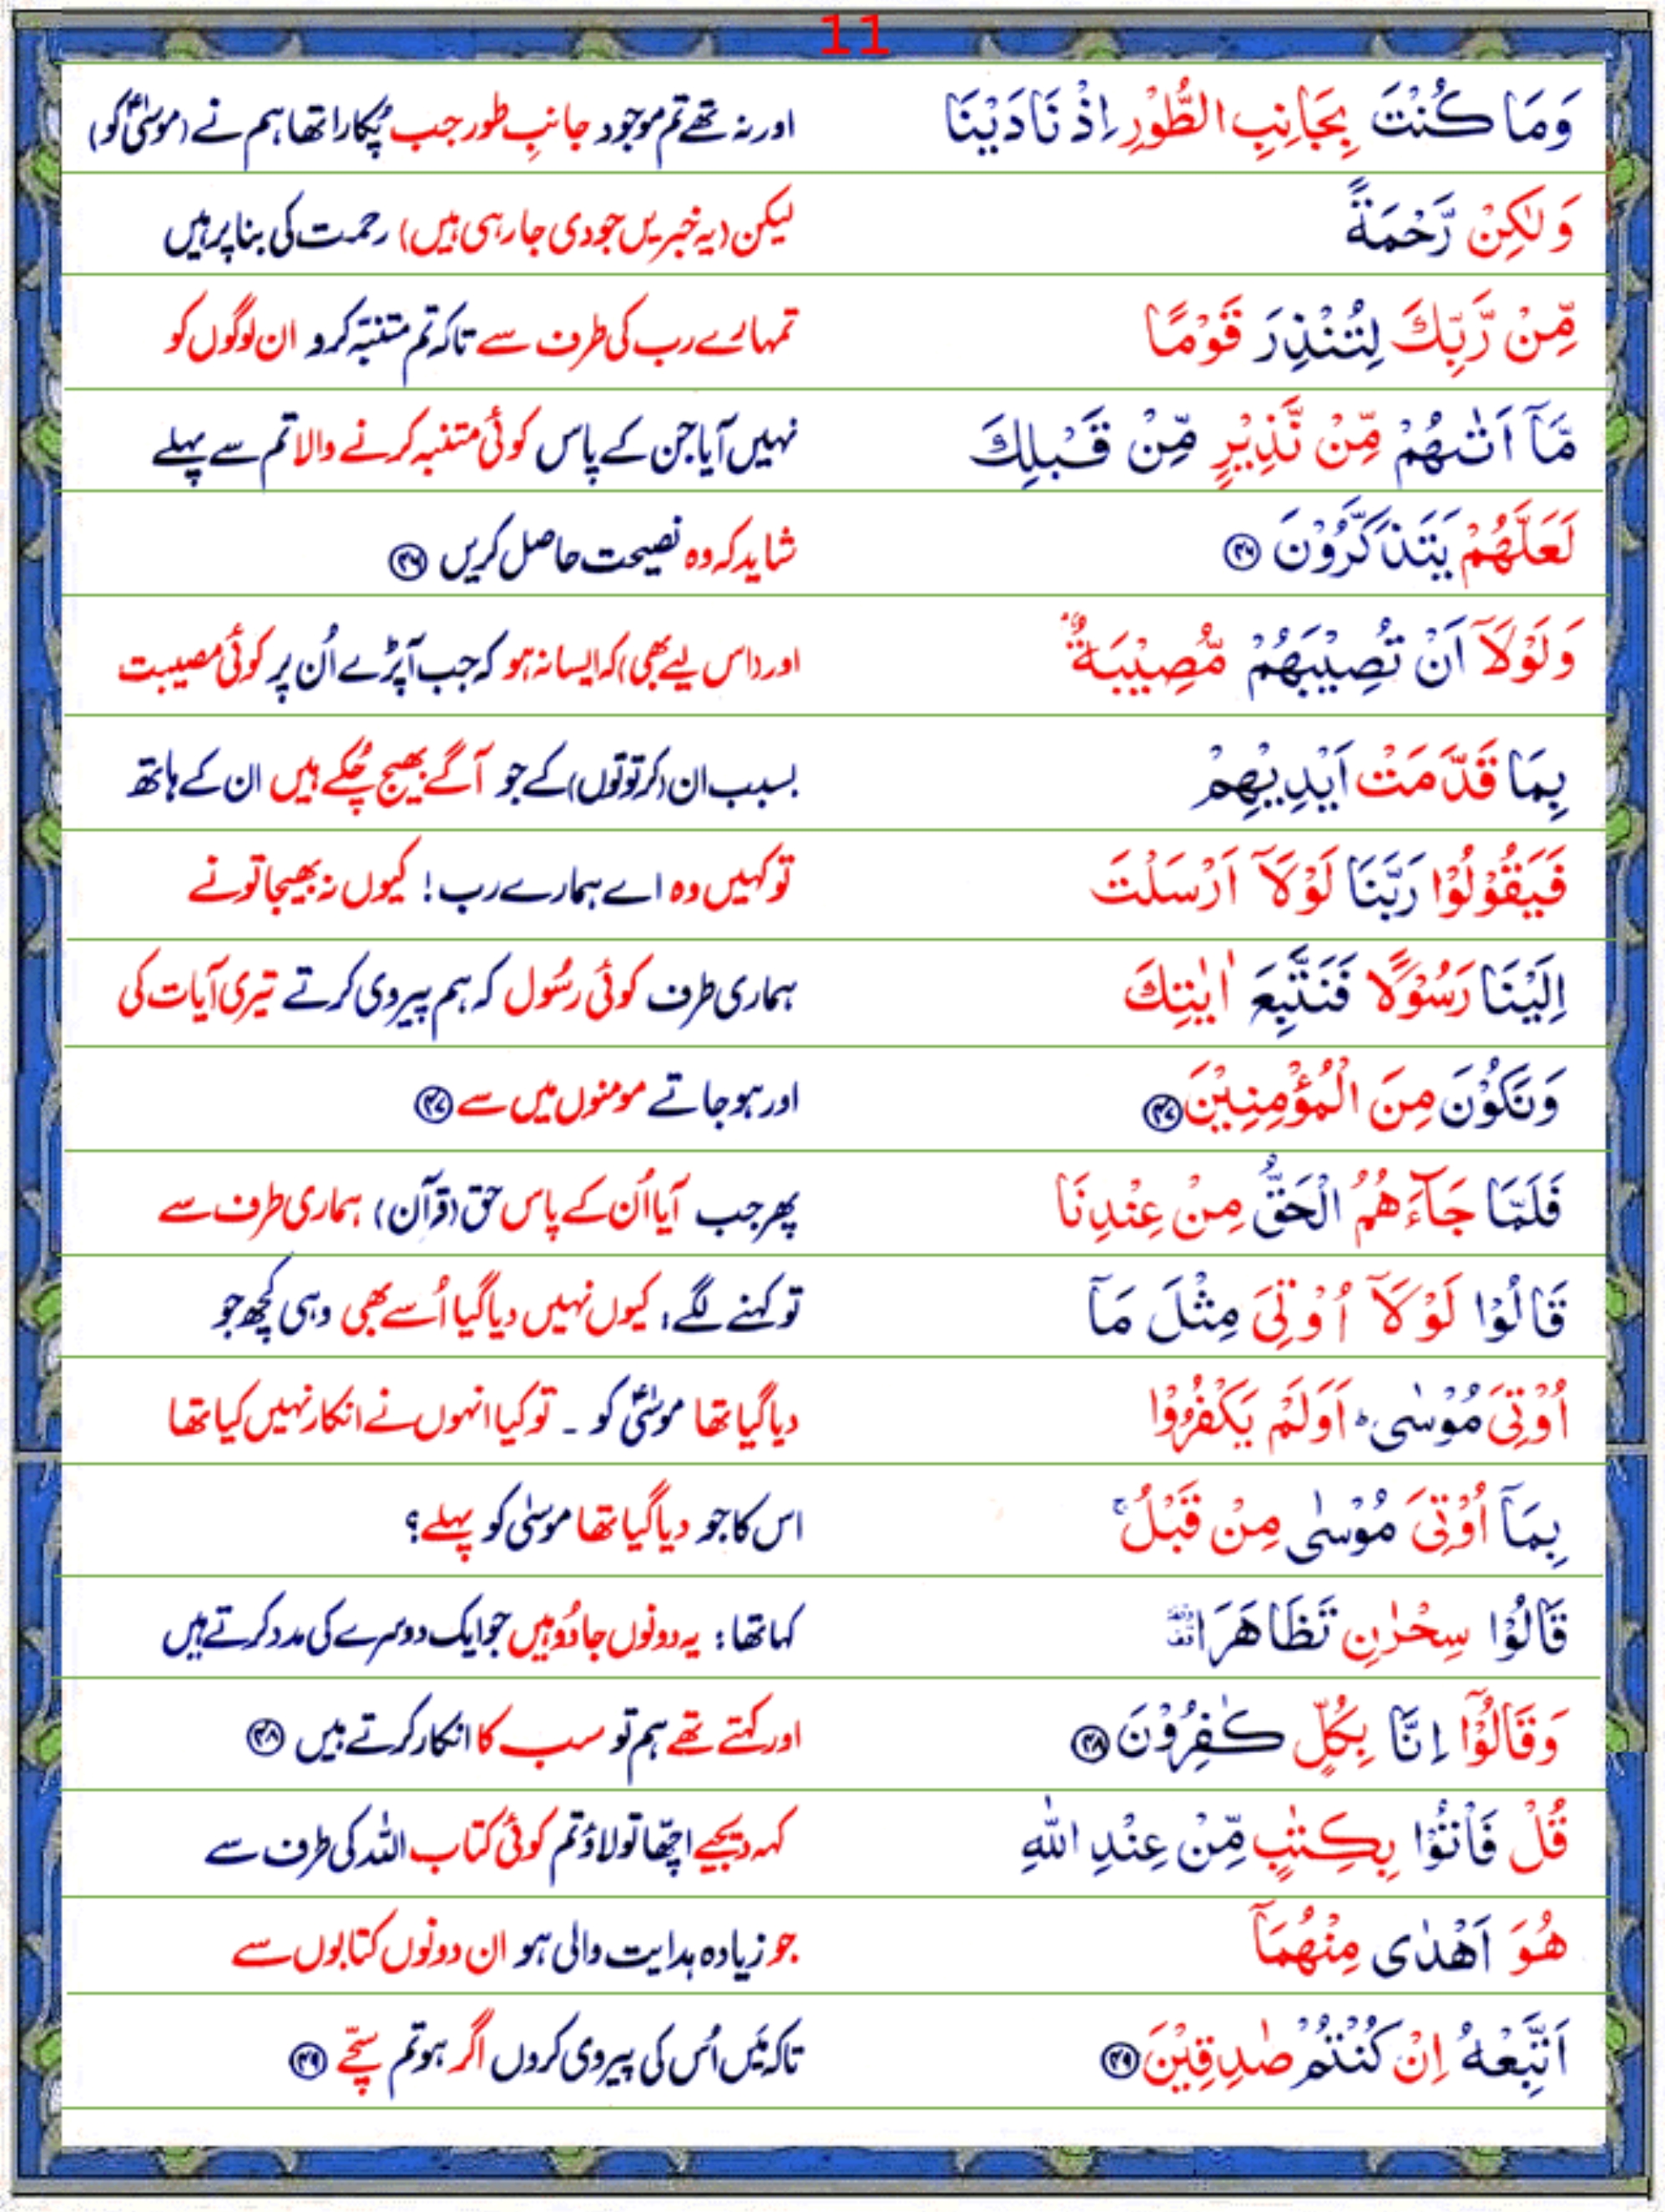 11
وَمَا كُنْتَ بِجَانِبِ الطُّوْرِ اِذْ نَادَيْنَا اور نہ تھے تم موجود جانبِ طور جب پُکارا تھا ہم نے (موسٰیؑ کو)
وَلٰكِنْ رَّحْمَةً لیکن (یہ خبریں جو دی جارہی ہیں) رحمت کی بنا پر ہیں
مِّنْ رَّبِّكَ لِتُنْذِرَ قَوْمًا تمہارے رب کی طرف سے تاکہ تم متنبّہ کرو ان لوگوں کو
مَّآ اَتٰىهُمْ مِّنْ نَّذِيْرٍ مِّنْ قَبْلِكَ نہیں آیا جن کے پاس کوئی متنبہ کرنے والا تم سے پہلے
لَعَلَّهُمْ يَتَذَكَّرُوْنَ ۴۶ شاید کہ وہ نصیحت حاصل کریں ۴۶
وَلَوْلَآ اَنْ تُصِيْبَهُمْ مُّصِيْبَةٌۢ اور (اس لیے بھی) کہ ایسا نہ ہو کہ جب آپڑے اُن پر کوئی مصیبت
بِمَا قَدَّمَتْ اَيْدِيْهِمْ بسبب ان (کرتوتوں) کے جو آگے بھیج چُکے ہیں ان کے ہاتھ
فَيَقُوْلُوْا رَبَّنَا لَوْلَآ اَرْسَلْتَ تو کہیں وہ اے ہمارے رب! کیوں نہ بھیجا تونے
اِلَيْنَا رَسُوْلًا فَنَتَّبِعَ اٰيٰتِكَ ہماری طرف کوئی رسُول کہ ہم پیروی کرتے تیری آیات کی
وَنَكُوْنَ مِنَ الْمُؤْمِنِيْنَ ۴۷ اور ہوجاتے مومنوں میں سے ۴۷
فَلَمَّا جَآءَهُمُ الْحَقُّ مِنْ عِنْدِنَا پھر جب آیا اُن کے پاس حق (قرآن) ہماری طرف سے
قَالُوْا لَوْلَآ اُوْتِيَ مِثْلَ مَآ تو کہنے لگے، کیوں نہیں دیا گیا اُسے بھی وہی کچھ جو
اُوْتِيَ مُوْسٰى ؕ اَوَلَمْ يَكْفُرُوْا دیا گیا تھا موسٰیؑ کو ۔ تو کیا انہوں نے انکار نہیں کیا تھا
بِمَآ اُوْتِيَ مُوْسٰى مِنْ قَبْلُ ۚ اس کا جو دیا گیا تھا موسٰی کو پہلے؟
قَالُوْا سِحْرٰنِ تَظَاهَرَا کہا تھا: یہ دونوں جادُو ہیں جو ایک دوسرے کی مدد کرتے ہیں
وَقَالُوْٓا اِنَّا بِكُلٍّ كٰفِرُوْنَ ۴۸ اور کہتے تھے ہم تو سب کا انکار کرتے ہیں ۴۸
قُلْ فَاْتُوْا بِكِتٰبٍ مِّنْ عِنْدِ اللّٰهِ کہہ دیجیے اچّھا تو لاؤ تم کوئی کتاب اللہ کی طرف سے
هُوَ اَهْدٰى مِنْهُمَآ جو زیادہ ہدایت والی ہو ان دونوں کتابوں سے
اَتَّبِعْهُ اِنْ كُنْتُمْ صٰدِقِيْنَ ۴۹ تاکہ مَیں اُس کی پیروی کروں اگر ہو تم سچّے ۴۹